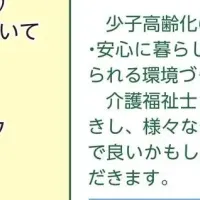 いて
少子高齢化
・安心に暮らし
られる環境づ
介護福祉士
きし、様々な
で良いかもし
だきます。